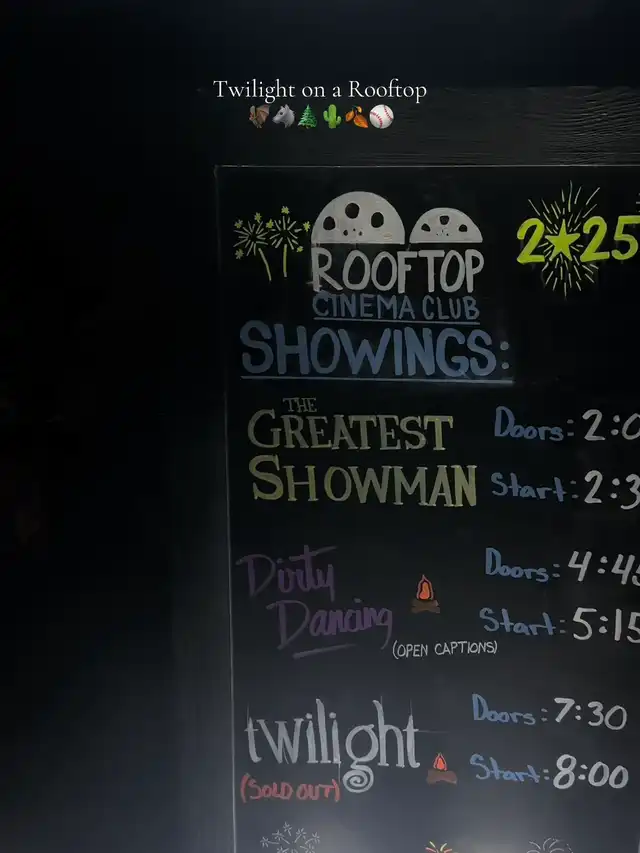 Twilight on a Rooftop
🦇🐴🌲🌵🍂⚾
2★25
ROOFTOP
CINEMA CLUB
SHOWINGS:
THE
GREATEST
SHOWMAN
Doors: 2:0
Start: 2:3
Dirty
Dancing
(OPEN CAPTIONS)
Doors: 4:45
Start: 5:15
twilight
(SOLD OUT)
Doors: 7:30
Start: 8:00